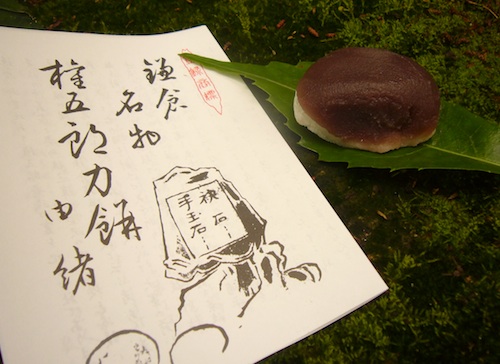 鎌倉
名物
権五郎力餅
由緒
袂石
手玉石